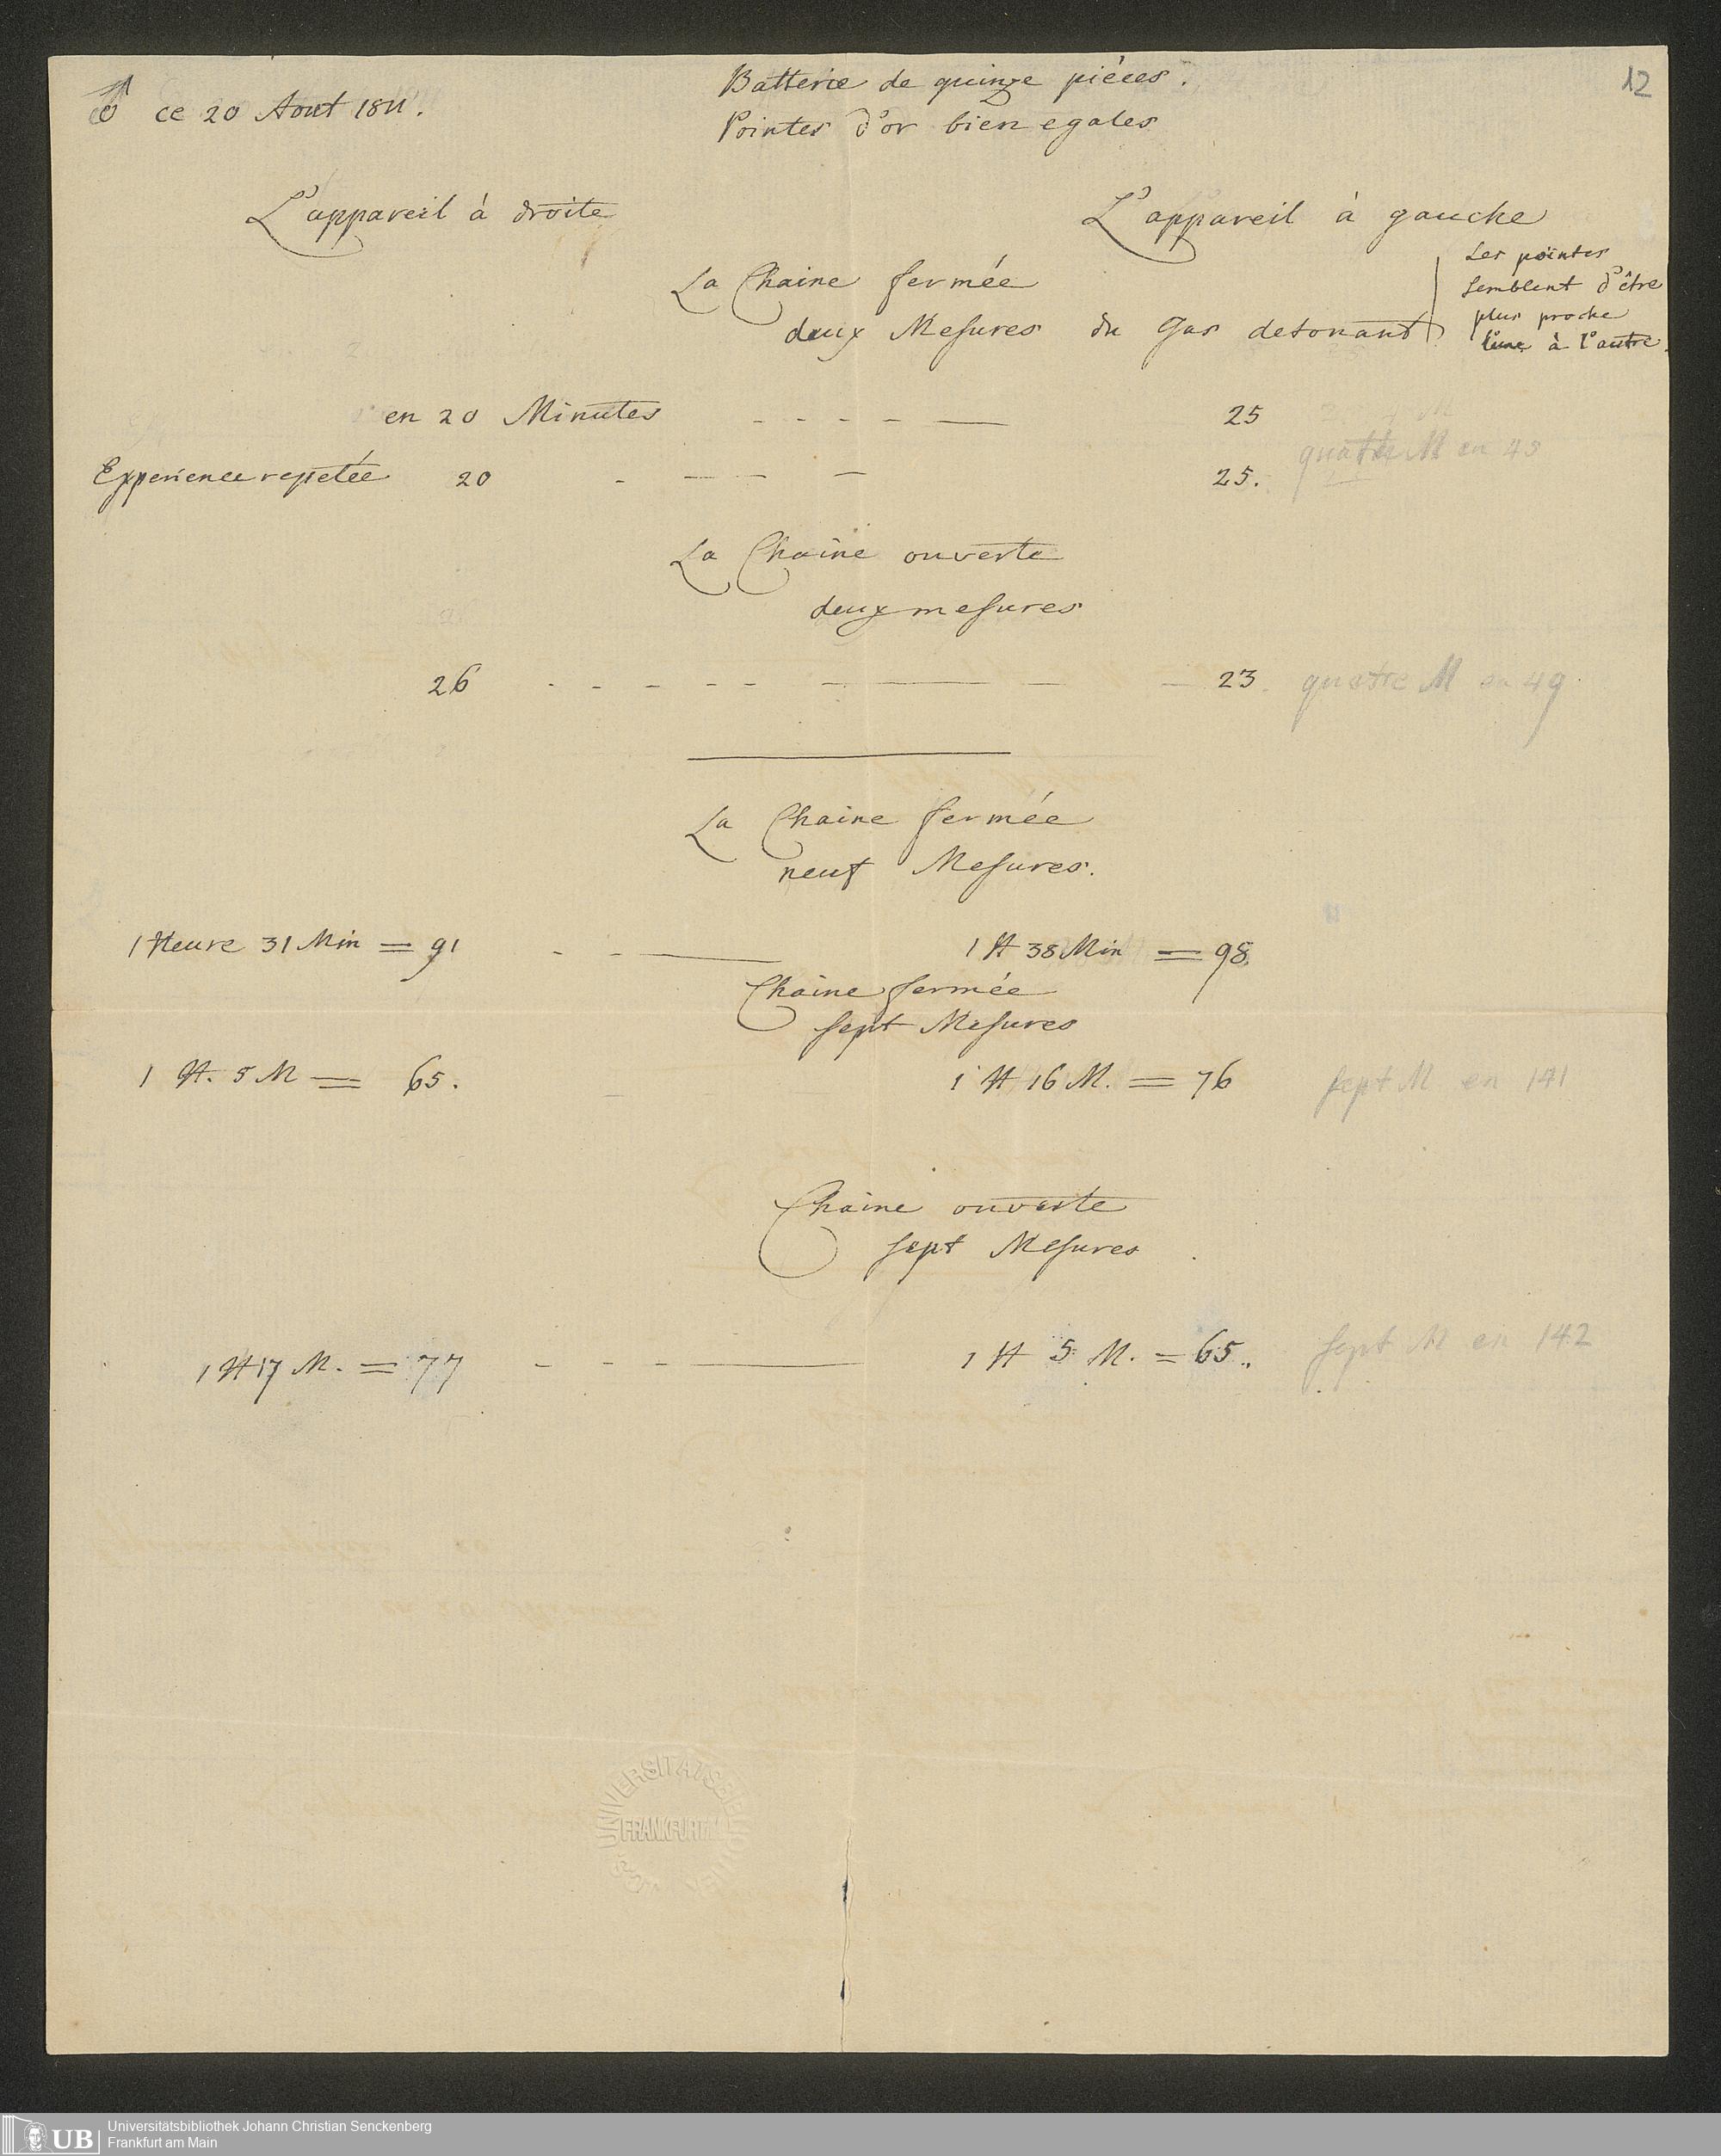 12
♂ ce 20 Aout 1811.
Batterie de quinze piéces.
Pointes d'or bien egales
L'appareil à droite
L'appareil à gauche
La Chaine fermée
deux Mesures du Gas detonant
Les pointes
semblent d'être
plus proche
l'une à l'autre.
en 20 Minutes - - - - — 25
quatre M en 45
Experience repetée 20 - — — — 25.
La Chaine ouverte
deux mesures
26 - - - - - — — — — 23. quatre M en 49
La Chaine fermée
neuf Mesures.
1 Heure 31 Min = 91 - - — 1 H 38 Min = 98.
Chaine fermée
sept Mesures
1 H. 5 M = 65. 1 H 16 M. = 76 sept M en 141
Chaine ouverte
sept Mesures
1 H 17 M. = 77 - - - — 1 H 5 M. = 65.. sept M en 142
UNIVERSITÄTSBIBLIOTHEK
FRANKFURT
UB
Universitätsbibliothek Johann Christian Senckenberg
Frankfurt am Main